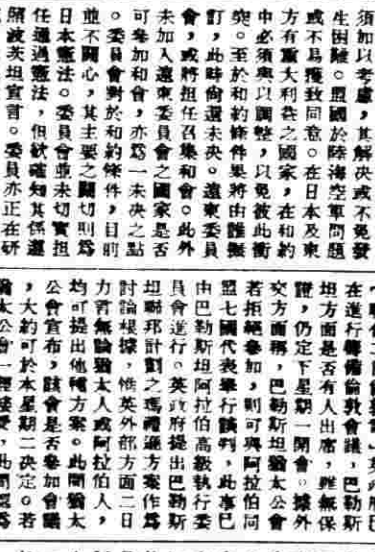 須加以考慮，其解決或不免發
生困難。盟國於陸海空軍問題
或不易獲致同意。在日本及東
方有重大利益之國家，在和約
中必須與以調整，以免彼此衝
突。至於和約條件果將由誰擬
訂，此時尙遠未决。遠東委員
會，或將担任召集和會。此外
未加入遠東委員會之國家是否
可參加和會，亦爲一未决之點
。委員會對於和約條件，目前
並不關心，其主要之關切則爲
日本憲法。委員會並未切實担
任通過憲法，但欲確知其係遵
照波茨坦宣言。委員亦正在研
在進行籌備倫敦會議，巴勒斯
坦方面是否有人出席，雖無保
證，仍定下星期一開會。據外
交方面稱，巴勒斯坦猶太公會
若拒絕參加，則可與阿拉伯同
盟七國代表舉行談判，此事已
由巴勒斯坦阿拉伯高級執行委
員會進行。英政府提出巴勒斯
坦聯邦計劃之瑪禮遜方案作爲
討論根據，惟英外部方面二日
力言無論猶太人或阿拉伯人，
均可提出他種方案。此間猶太
公會宣布，該會是否參加會議
，大約可於本星期二决定。若
猶太公會一經接受，此間認爲